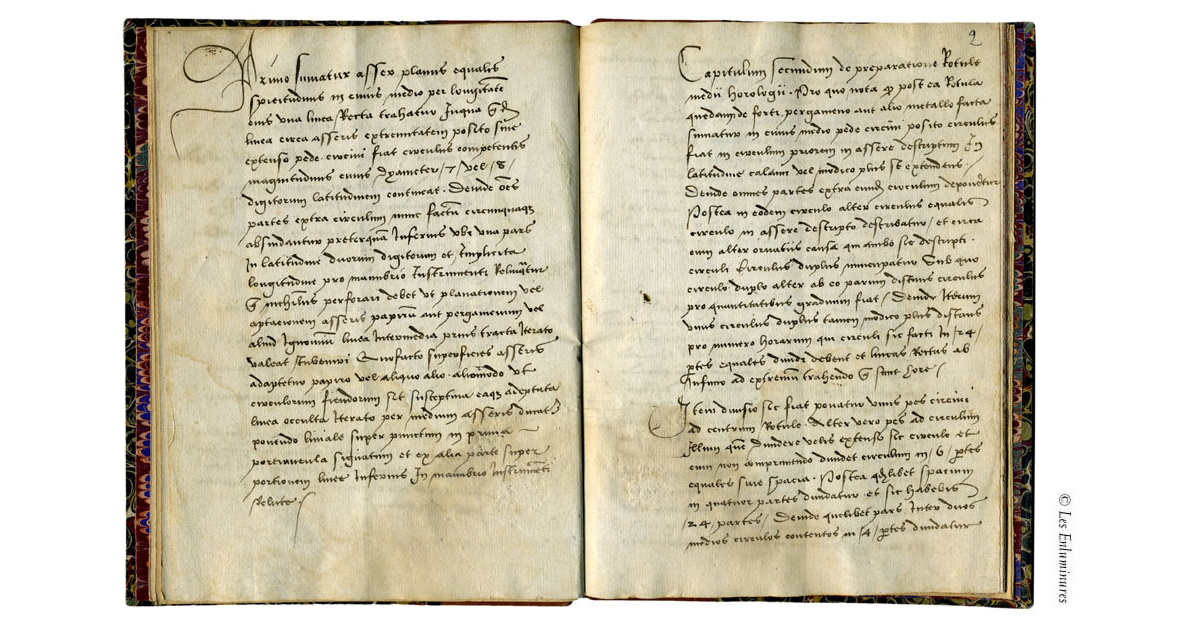 Primo sumatur asser planus equalis
spissitudinis in cuius medio per longitudīe
eius una linea Recta trahatur In qua
linea circa asseris extremitatem posito siue
extenso pede circini fiat circulus competentis
magnitudinis cuius dyameter / 7 / vel / 8 /
digitorum latitudinem contineat . Deinde oēs
partes extra circulum nunc factū circumquaq
absindantur preterquā Inferius vbi vna pars
In latitudine duorum digitorum et
longitudine pro manubrio Instrumenti
nichilus perforari debet vt planationem vel
aptacionem asseris papirū aut pergamenum vel
aliud linea Intermedia prius tracta Iterato
valeat Quo facto superficies asseris
adaptetur papiro vel aliquo alio aliomodo vt
circulorum fiendorum sit susceptiua eaq adeptata
linea occulta Iterato per medium asseris ducat
ponendo liniale super punctum in prima
portiuncula signatum et ex alia parte super
portionem linee Inferius In manubrio Instrumēti
Relicte
2
Capitulum Secundum de preparatione Rotule
medii horologii . Pro quo nota post ea Rotula
quedam de forti pergameno aut alio metallo facta
sumatur in cuius medio pede circini posito circulus
fiat in circulum priorem in assere descriptum
latitudine calami vel modico plus se extendens .
Deinde omnes partes extra circulum
Postea in eodem circulo alter circulus equalis
circulo in assere descripto describatur / et circa
eum alter ornatus causa qui ambo sic descripti .
circuli Circulus duplus nuncupatur Sub quo
circulo duplo alter ab eo parum distans circulus
pro quantitatibus graduum fiat / Deinde Iterum
vnus circulus duplus tamen modico plus distans
pro numero horarum qui circuli sic facti In / 24 /
ptes equales diuidi debent et lineas Rectas ab
Infimo ad extremum trahendo sunt hore /
Item diuisio sic fiat ponatur vnus pes circini
ad centrum Rotule . Alter vero pes ad circulum
Illum quē diuidere velis extenso sic circulo et
eum non comprimendo diuidet circulum in / 6 / ptes
equales siue spacia . Postea qdlibet spacium
in quatuor partes diuidatur et sic habebis
/ 24 partes / Deinde quelibet pars Inter duos
medios circulos contentos in / 4 / ptes diuidatur
© Les Enluminures